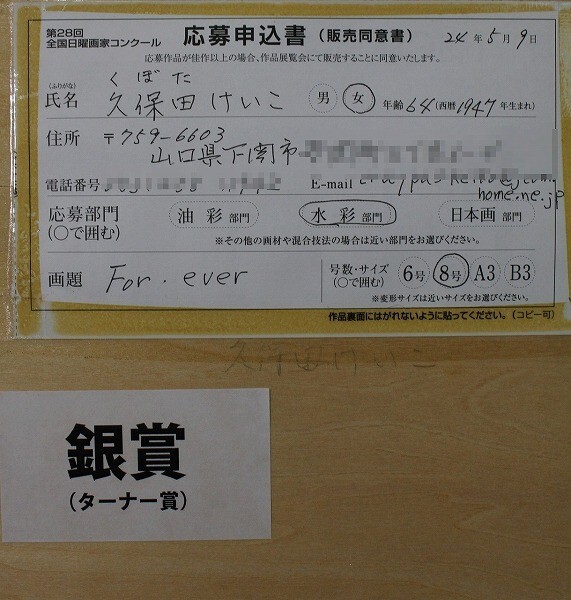 第28回
全国日曜画家コンクール 応募申込書（販売同意書） 24年5月9日
応募作品が佳作以上の場合、作品展覧会にて販売することに同意いたします。
（ふりがな） くぼた
氏名 久保田けいこ 男 女 年齢64（西暦1947年生まれ）
住所 〒759-6603
山口県下関市
電話番号 E-mail
home.ne.jp
応募部門 油彩部門 水彩部門 日本画部門
（○で囲む） ※その他の画材や混合技法の場合は近い部門をお選びください。
画題 For.ever 号数・サイズ（○で囲む） 6号 8号 A3 B3
※変形サイズは近いサイズをお選びください。
作品裏面にはがれないように貼ってください。（コピー可）
久保田けいこ
銀賞
（ターナー賞）